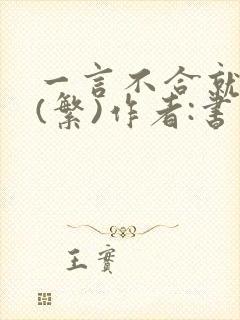 一言不合就
(繁)作者:書
王實